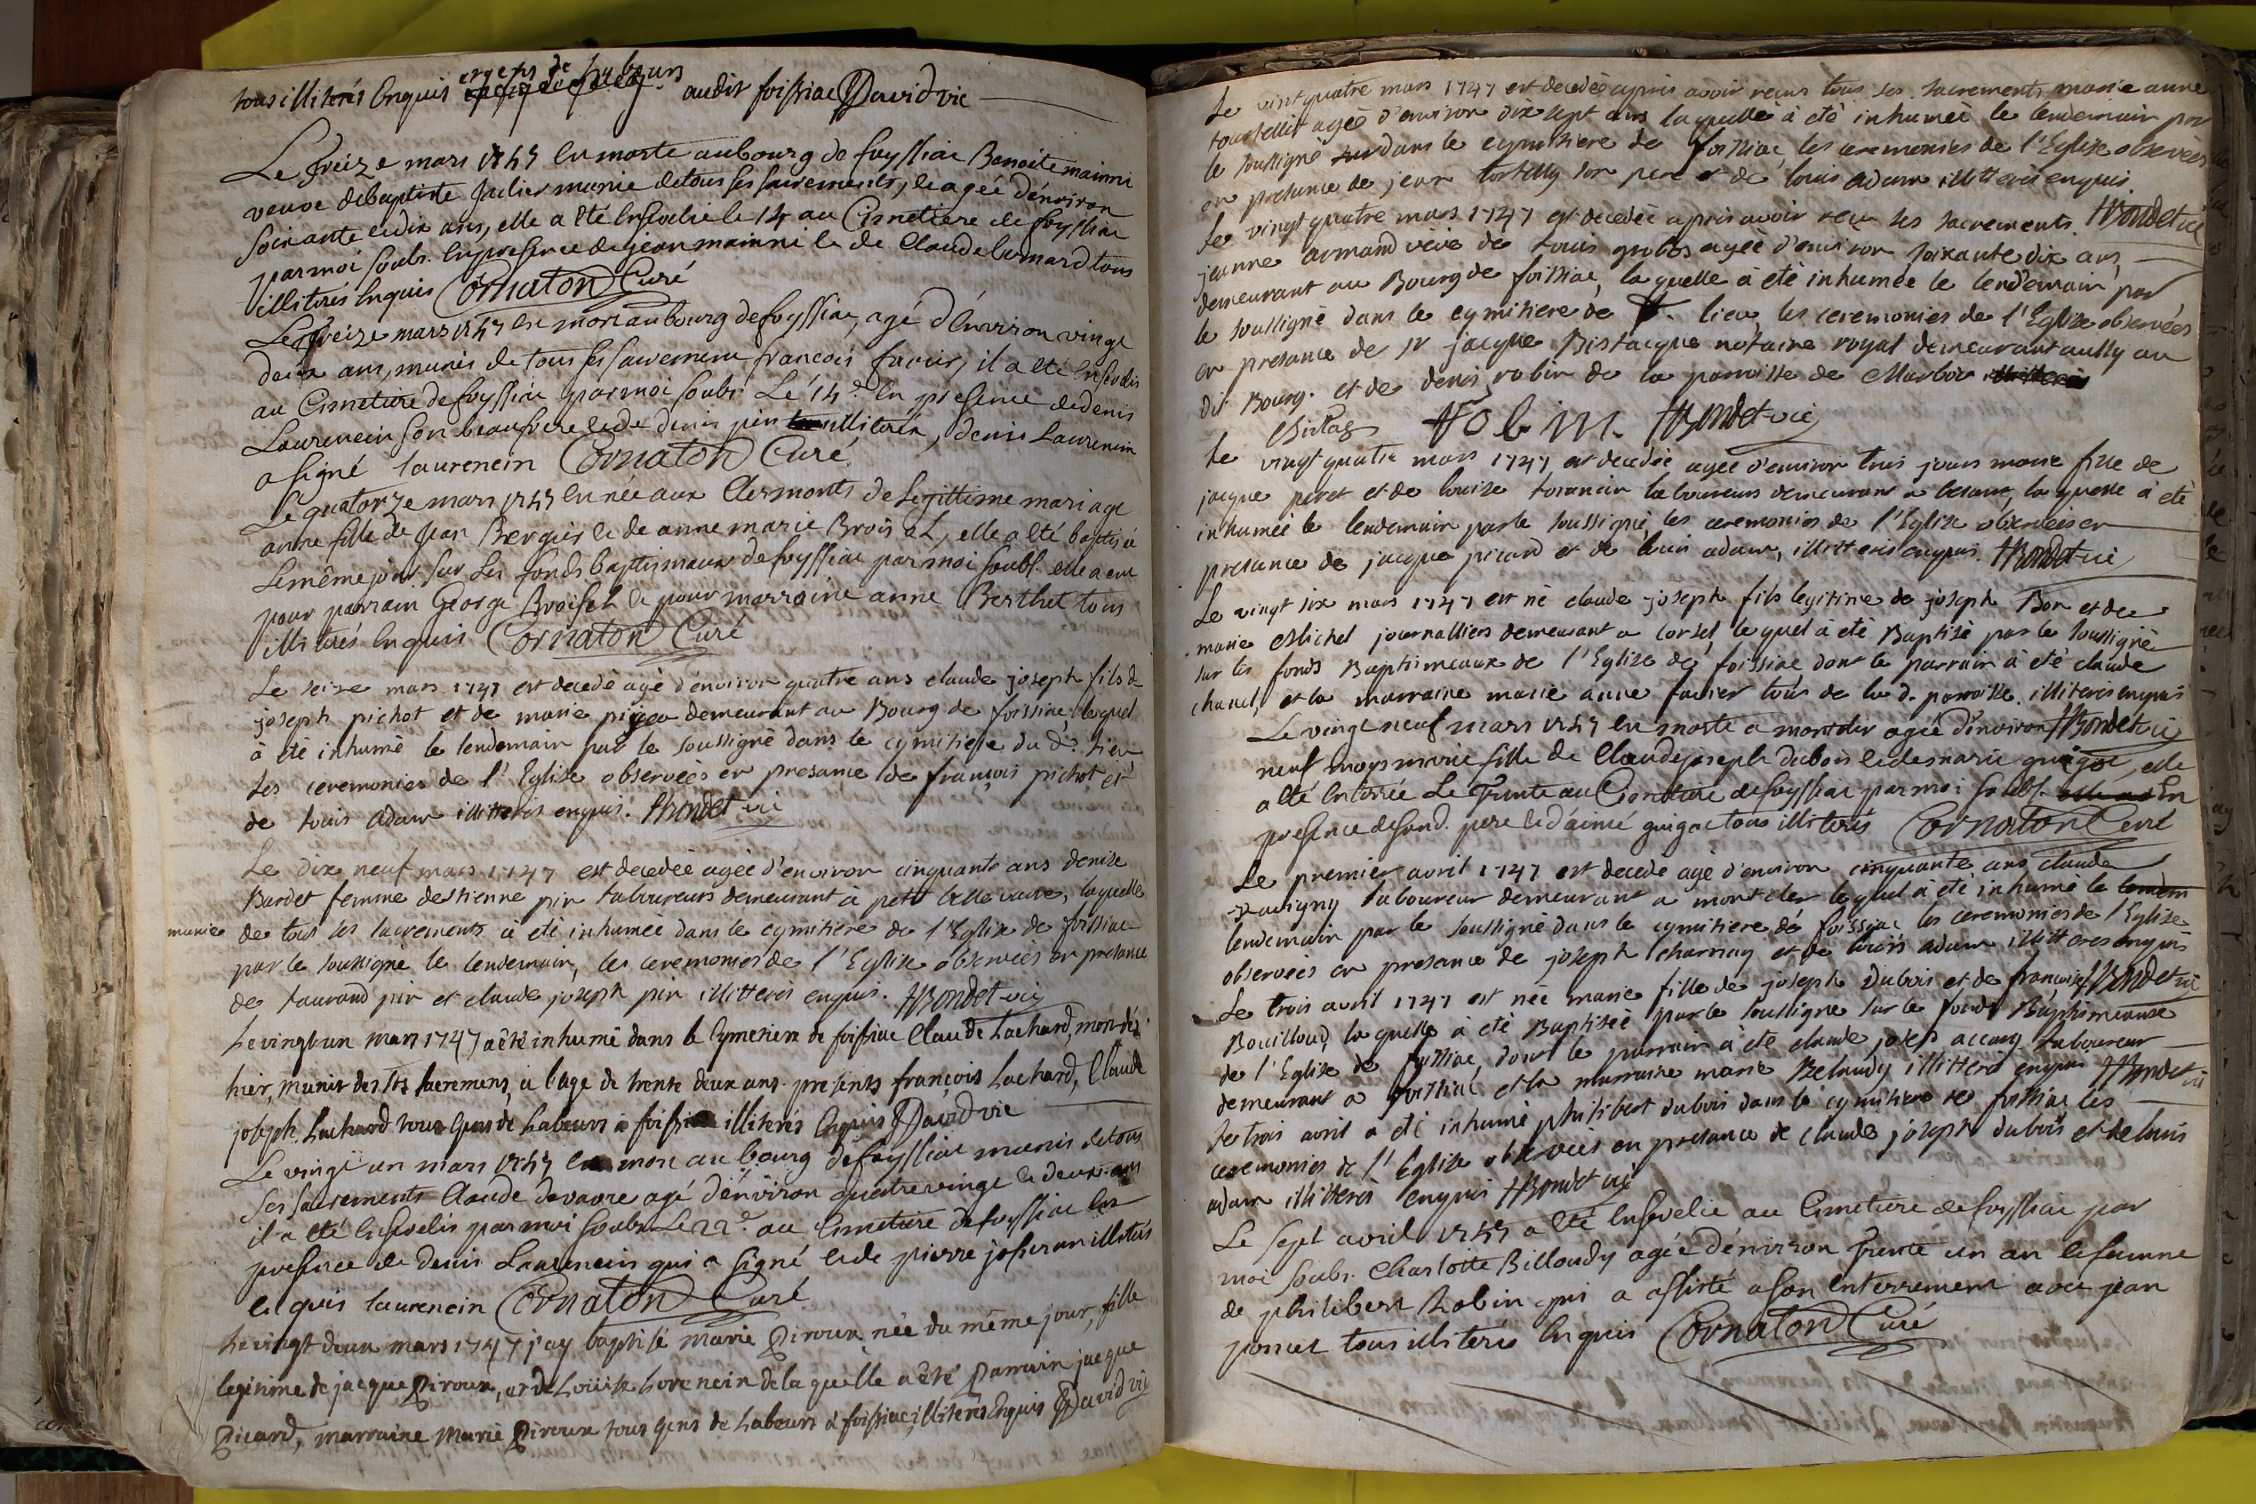 tous illiterés Enquis et gens de labeurs audit foissiac David vic
Le treize mars 1747 est morte au bourg de foyssiac Benoite mainni
veuve de baptiste Julier munie de tous ses sacrements, et agée d'environ
soixante et dix ans, elle a été Ensevelie le 14 au Cimetiere de foyssiac
par moi soubs. En presence de jean mainni et de Claude bernard tous
illiterés Enquis Cornaton Curé
Le treize mars 1747 est mort au bourg de foyssiac, agé d'Environ vingt
deux ans, munis de tous ses sacrements françois favier, il a été Ensevelis
au Cimetiere de foyssiac par moi soubs. Le 14e En presence de denis
Laurencin son beaufrere et de denis pin illiterés, denis Laurencin
a signé laurencin Cornaton Curé
Le quatorze mars 1747 est née aux Clermonts de Legittime mariage
anne fille de Jean Bergier et de anne marie Broisat, elle a été baptisé
Le même jour sur Les fonds baptismaux de foyssiac par moi soubs. elle a eu
pour parrain George Broisat et pour marraine anne Berthet tous
illiterés Enquis Cornaton Curé
Le seize mars 1747 est decedé agé d'environ quatre ans claude joseph fils de
joseph pichot et de marie demeurant au Bourg de foissiac lequel
à eté inhumé le lendemain par le soussigné dans le cymitiere du d. lieu
les ceremonies de l'Eglise observeés en presance de françois pichot et
de louis adam illitterés enquis. HBondet vic
Le dix neuf mars 1747 est decedeé ageé d'environ cinquante ans denise
Bardet femme d'estienne pin laboureurs demeurant à petit bellevavre, laquelle
munie de tous les sacrements à eté inhumeé dans le cymitiere de l'Eglise de foissiac
par le soussigné le lendemain, les ceremonies de l'Eglise observeés en presance
de laurand pin et claude joseph pin illitterés enquis. HBondet vic
Le vingt un mars 1747 a été inhumé dans le Cymetiere de foissiac Claude Lachard, mort dés
hier, munis des Sts sacremens, à l'age de trente deux ans. presents françois Lachard, Claude
joseph Lachard tous gens de Labeurs à foissiac illiterés Enquis David vic
Le vingt un mars 1747 est mort au bourg de foyssiac munis de tous
ses sacrements Claude devavre agé d'environ quatre vingt et deux ans
il a été Ensevelis par moi soubs. Le 22e au Cimetiere de foyssiac En
presence de Denis Laurencin qui a signé et de pierre josseran illiterés
Enquis laurencin Cornaton Curé
Le vingt deux mars 1747 j'ay baptisé marie Piroux née du même jour, fille
legitime de jacque Piroux, et de Loüise Lorencin de la quelle a été Parrain jacque
Picard, marraine Marie Piroux tous gens de Labeurs à foissiac, illiterés Enquis David vic
Le vint quatre mars 1747 est decedeé aprés avoir reçus tous les sacrements marie anne
tourtellit ageé d'environ dix sept ans laquelle à eté inhumeé le lendemain par
le soussigné dans le cymitiere de foissiac les ceremonies de l'Eglise observeés
en presance de jean tortelly son pere et de louis adam illitterés enquis.
Le vingt quatre mars 1747 est decedeé aprés avoir reçu les sacrements HBondet vic
jeanne armand veve de louis ageé d'environ soixante dix ans,
demeurant au Bourg de foissiac, la quelle à eté inhumée le lendemain par
le soussigné dans le cymitiere de d. lieu, les ceremonies de l'Eglise observées
en presance de sr jacque Bistacque notaire royal demeurant aussy au
dit Bourg. et de denis robin de la parroisse de Marboz
robin. HBondet vic
Le vingt quatre mars 1747 est decedeé ageé d'environ trois jours marie fille de
jacque piret et de louise lorancin laboureurs demeurant a besant, la quelle à eté
inhumeé le lendemain par le soussigné, les ceremonies de l'Eglise observeés en
presance de jacque picard et de louis adam, illitterés enquis. HBondet vic
Le vingt six mars 1747 est né claude joseph fils legitime de joseph Bon et de
marie Michel journalliers demeurant a lequel à eté Baptisé par le soussigné
sur les fonds Baptismeaux de l'Eglise de foissiac dont le parrain à eté claude
chanel, et la marraine marie anne favier tous de la d. parroisse. illiterés enquis
Le vingt neuf mars 1747 est morte a montcler agée d'environ HBondet vic
neuf moys marie fille de Claude joseph dubois et de marie guigue, elle
a été Enterrée Le Trente au Cimetiere de foyssiac par moi soubs. En
presence de son d. pere et d'aimé guigue tous illiterés Cornaton Curé
Le premier avril 1747 est decedé agé d'environ cinquante ans claude
ravigny laboureur demeurant a montcler lequel à eté inhumé le
lendemain par le soussigné dans le cymitiere de foissiac les ceremonies de l'Eglise
observeés en presance de joseph charnay et de louis adam illitterés enquis
Le trois avril 1747 est neé marie fille de joseph Dubois et de françoise HBondet vic
Bouilloud, la quelle à eté Baptiseé par le soussigné sur le fonds Baptismeaux
de l'Eglise de foissiac, dont le parrain à eté claude joseph laboureur
demeurant a foissiac et la marraine marie Belaudy illitterés enquis HBondet vic
Le trois avril a eté inhumé philibert dubois dans le cymitiere de foissiac les
ceremonies de l'Eglise observeés en presance de claude joseph dubois et de louis
adam illitterés enquis HBondet vic
Le sept avril 1747 a été Ensevelie au Cimetiere de foyssiac par
moi soubs. Charlotte Billoudy agée d'environ trente un an et femme
de philibert Robin qui a assisté a son Enterrement avec jean
poncet tous illiterés Enquis Cornaton Curé